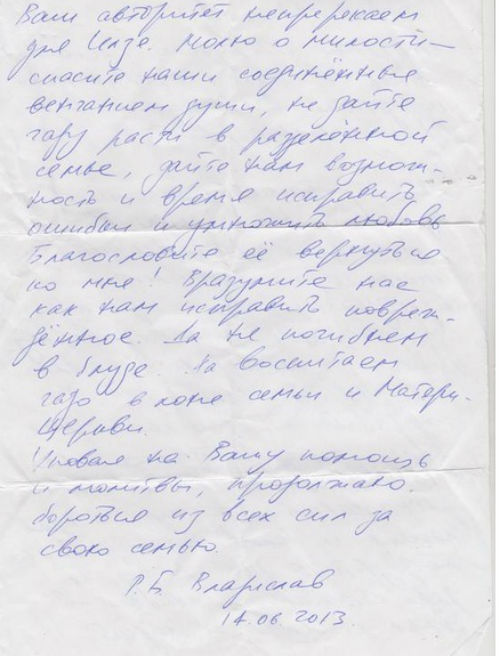 Ваш авторитет непререкаем
для Илзе. Молю о милости –
спасите наши соединённые
венчанием души, не дайте
чаду расти в разделённой
семье, дайте нам возмож-
ность и время исправить
ошибки и умножить любовь
Благословите её вернуться
ко мне! Вразумите нас
как нам исправить повреж-
дённое. Да не погибнем
в блуде. Да воспитаем
чадо в лоне семьи и Матери-
Церкви.
Уповая на Вашу помощь
и молитвы, продолжаю
бороться из всех сил за
свою семью.
Р.Б. Владислав
14.06.2013.